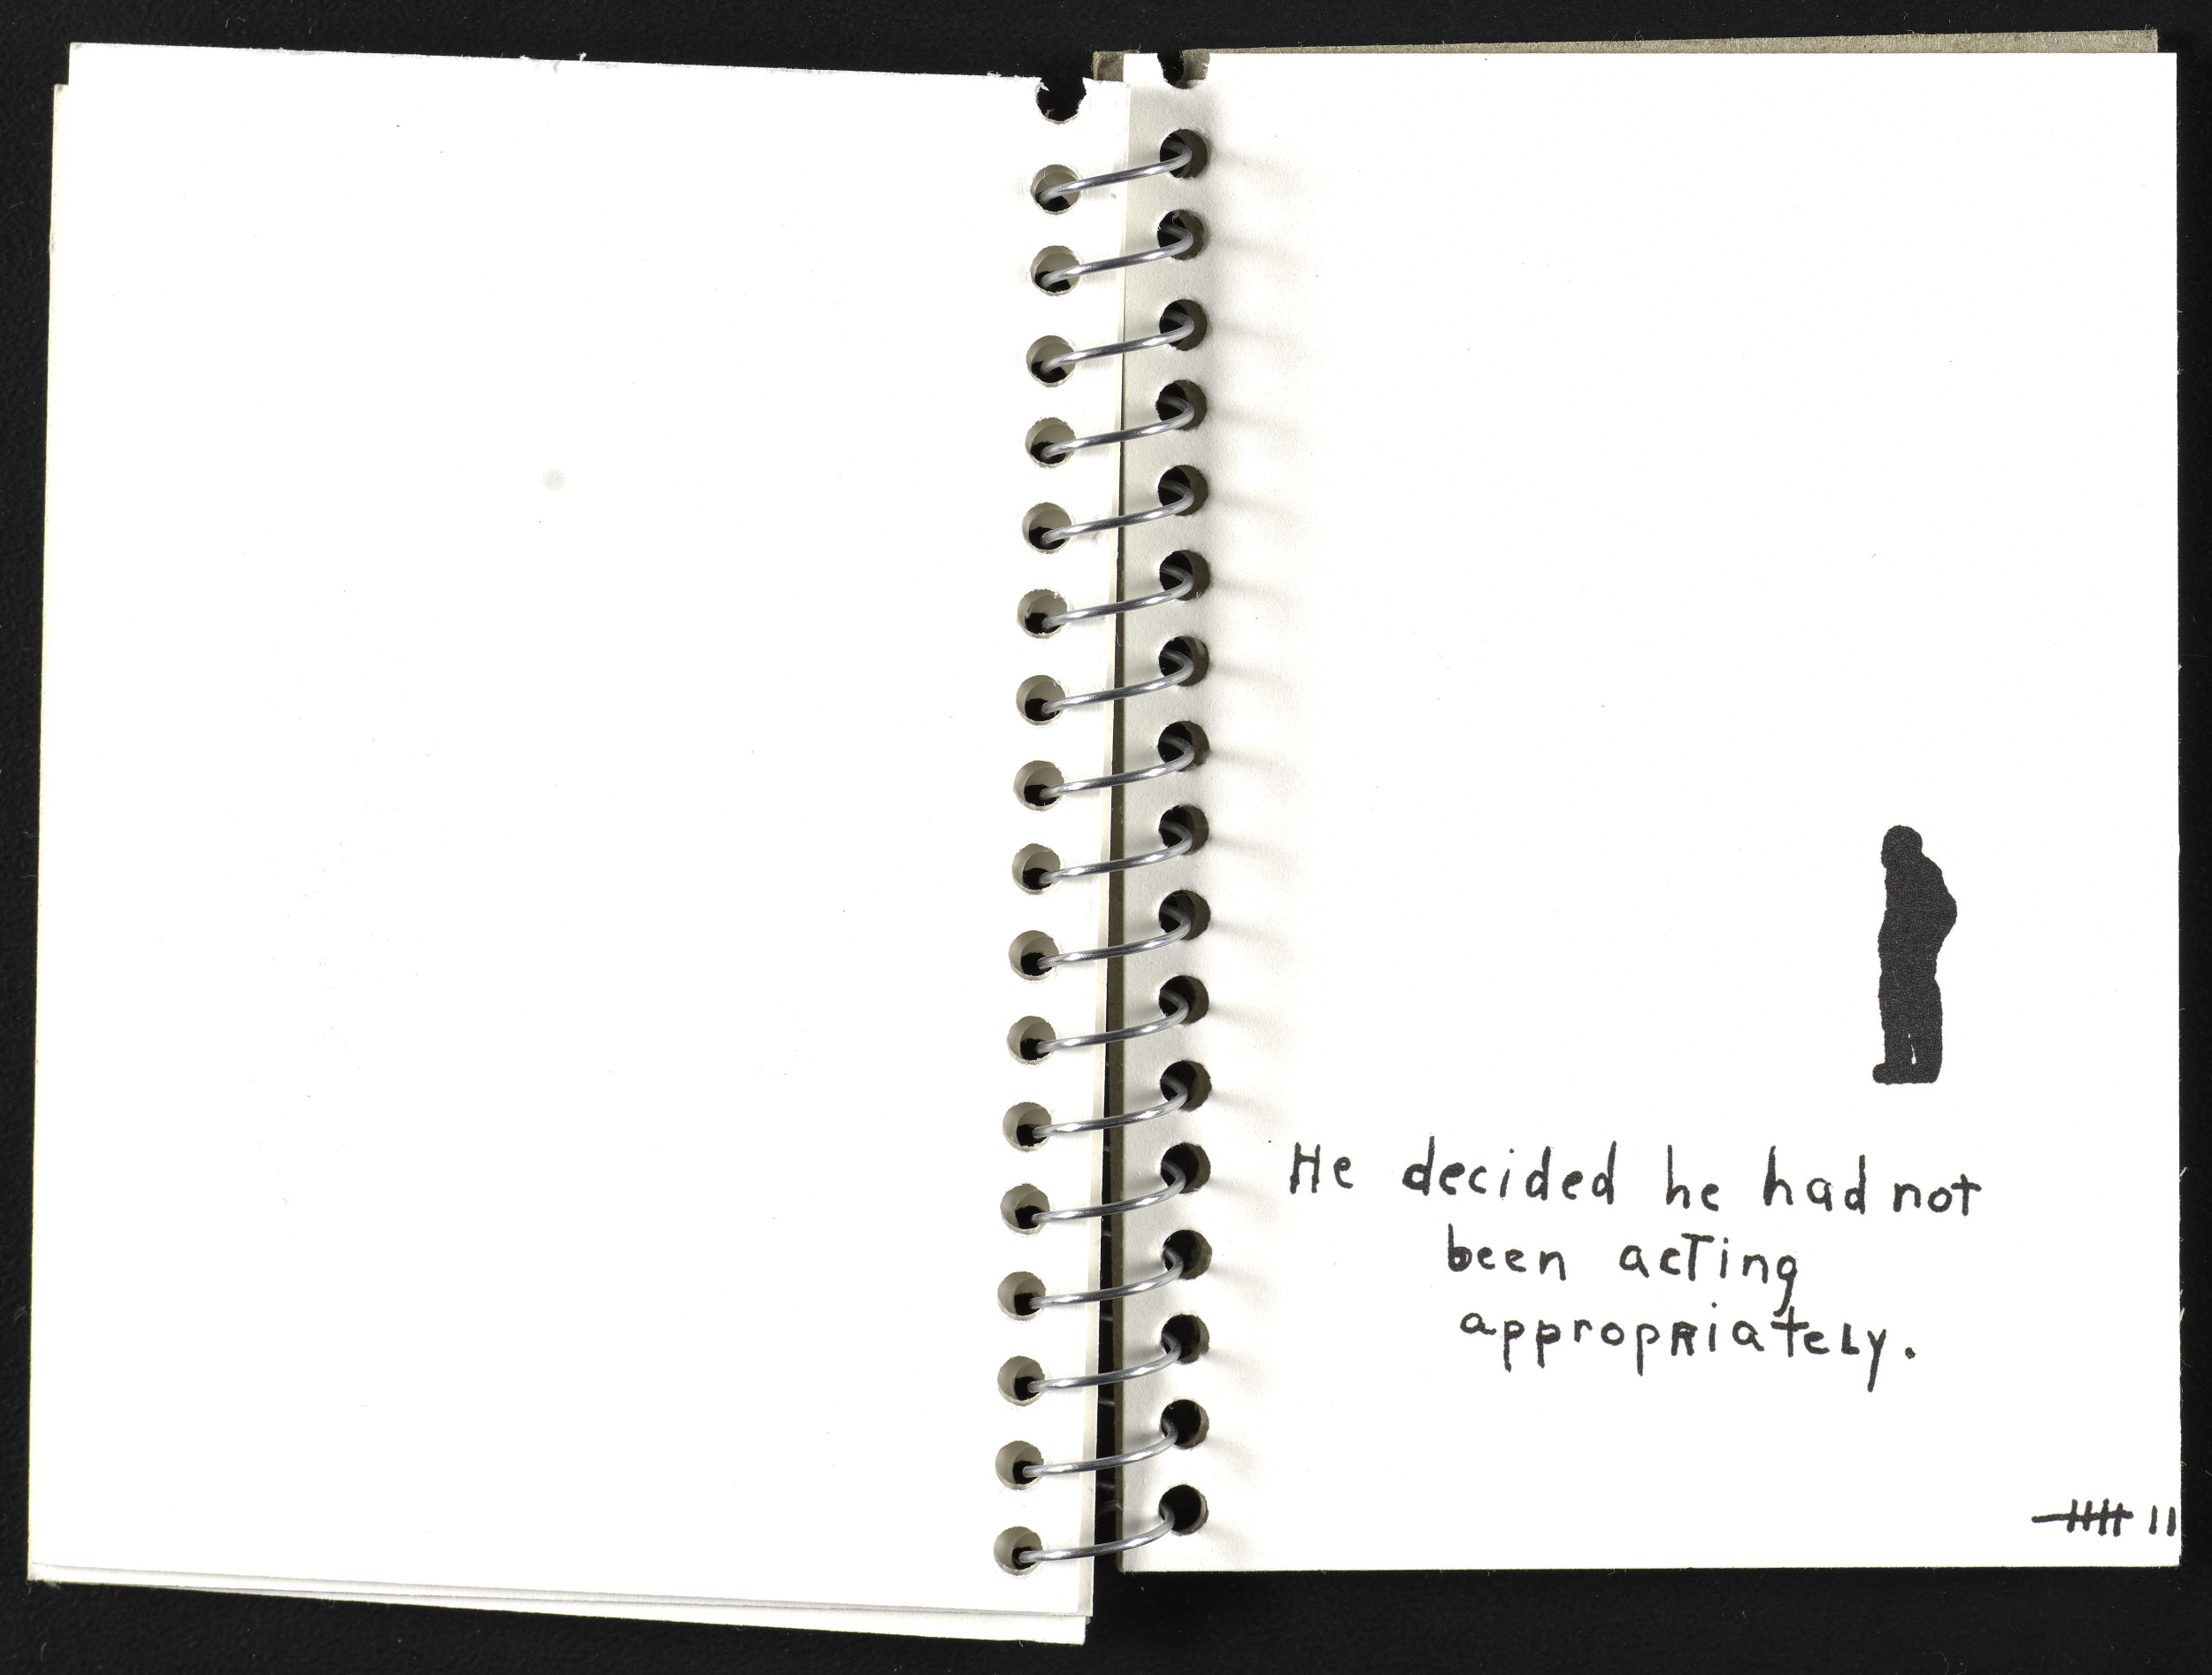 He decided he had not
been acTing
appropRiateLy.
𝍸 II